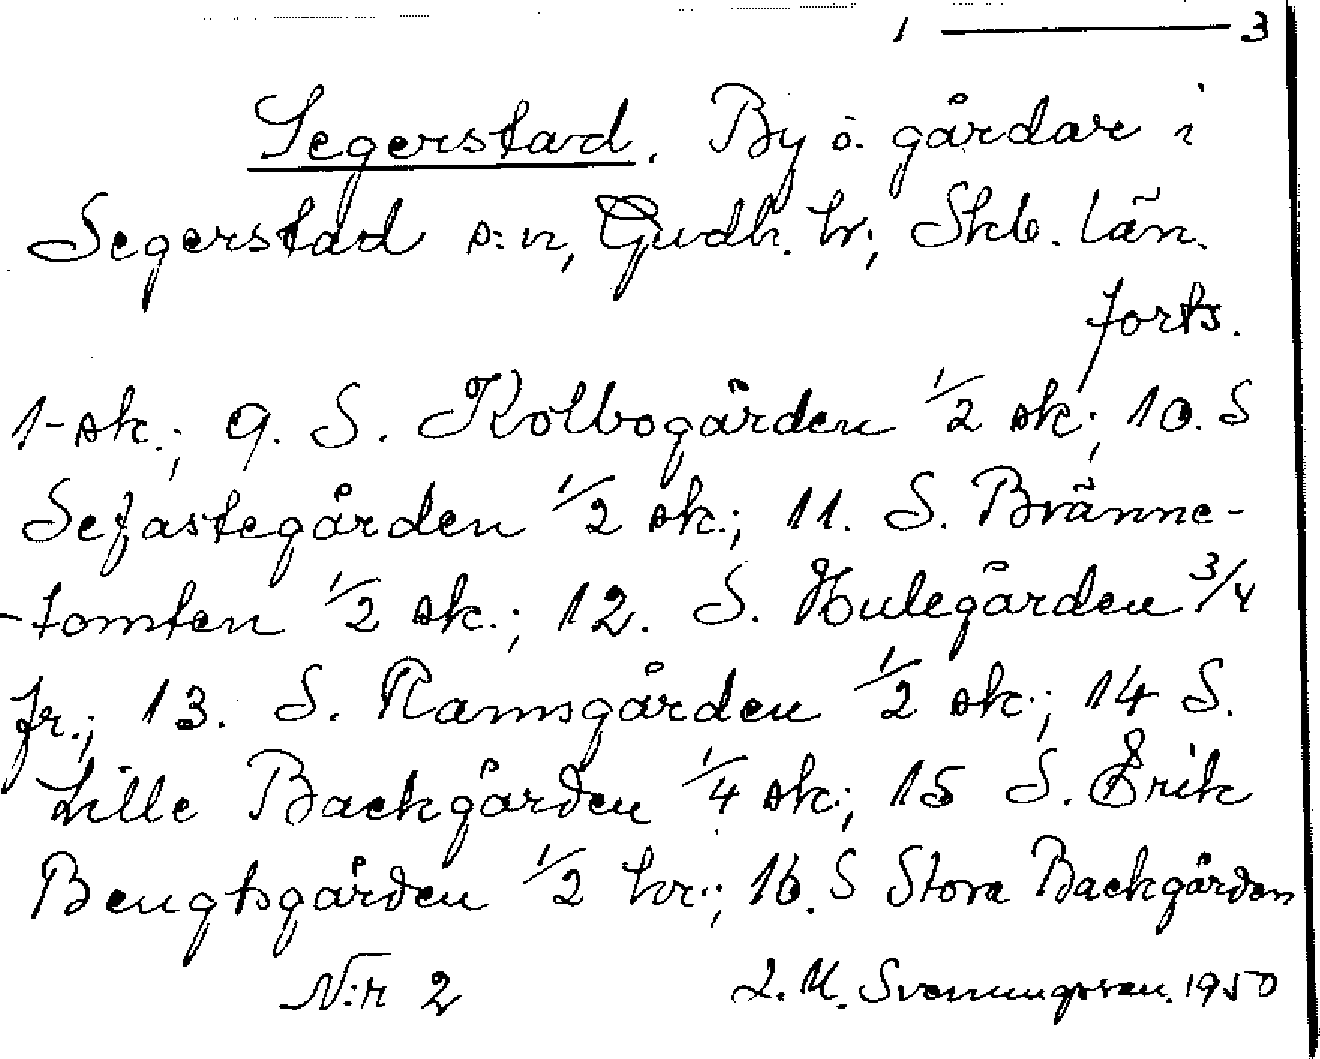 1 — 3
Segerstad. By o. gårdar i
Segerstad s:n, Gudh. hr; Skb. län.
forts.
1 sk.; 9. S. Kolbogården 1/2 sk; 10. S
Sefastegården 1/2 sk.; 11. S. Bränne-
-tomten 1/2 sk.; 12. S. Hulegården 3/4
fr.; 13. S. Ramsgården 1/2 sk.; 14 S.
Lille Backgården 1/4 sk; 15 S. Erik
Bengtsgården 1/2 kr.; 16. S Stora Backgården
N:r 2 Svenungsson. 1950